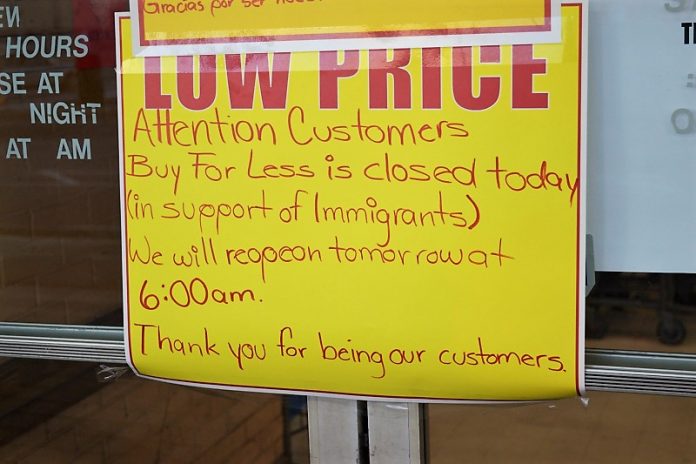 Gracias por ser
HOURS
SE AT
NIGHT
AT AM
LOW PRICE
Attention Customers
Buy For Less is closed today
(in support of Immigrants)
We will reopeon tomorrow at
6:00am.
Thank you for being our customers.